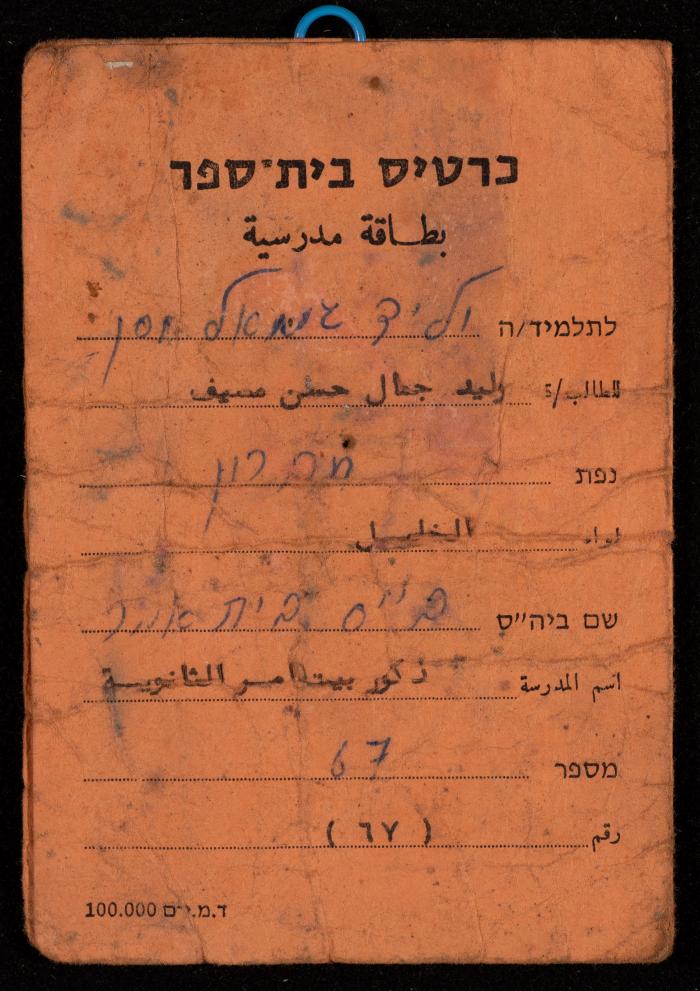 כרטיס בית־ספר
بطاقة مدرسية
לתלמיד/ה וליד גמאל חסן
للطالب/ة وليد جمال حسن
נפת חברון
لواء الخليل
שם ביה״ס בי״ס בית אומר
اسم المدرسة ذكور بيت امر الثانوية
מספר 67
رقم ( ٦٧ )
100.000